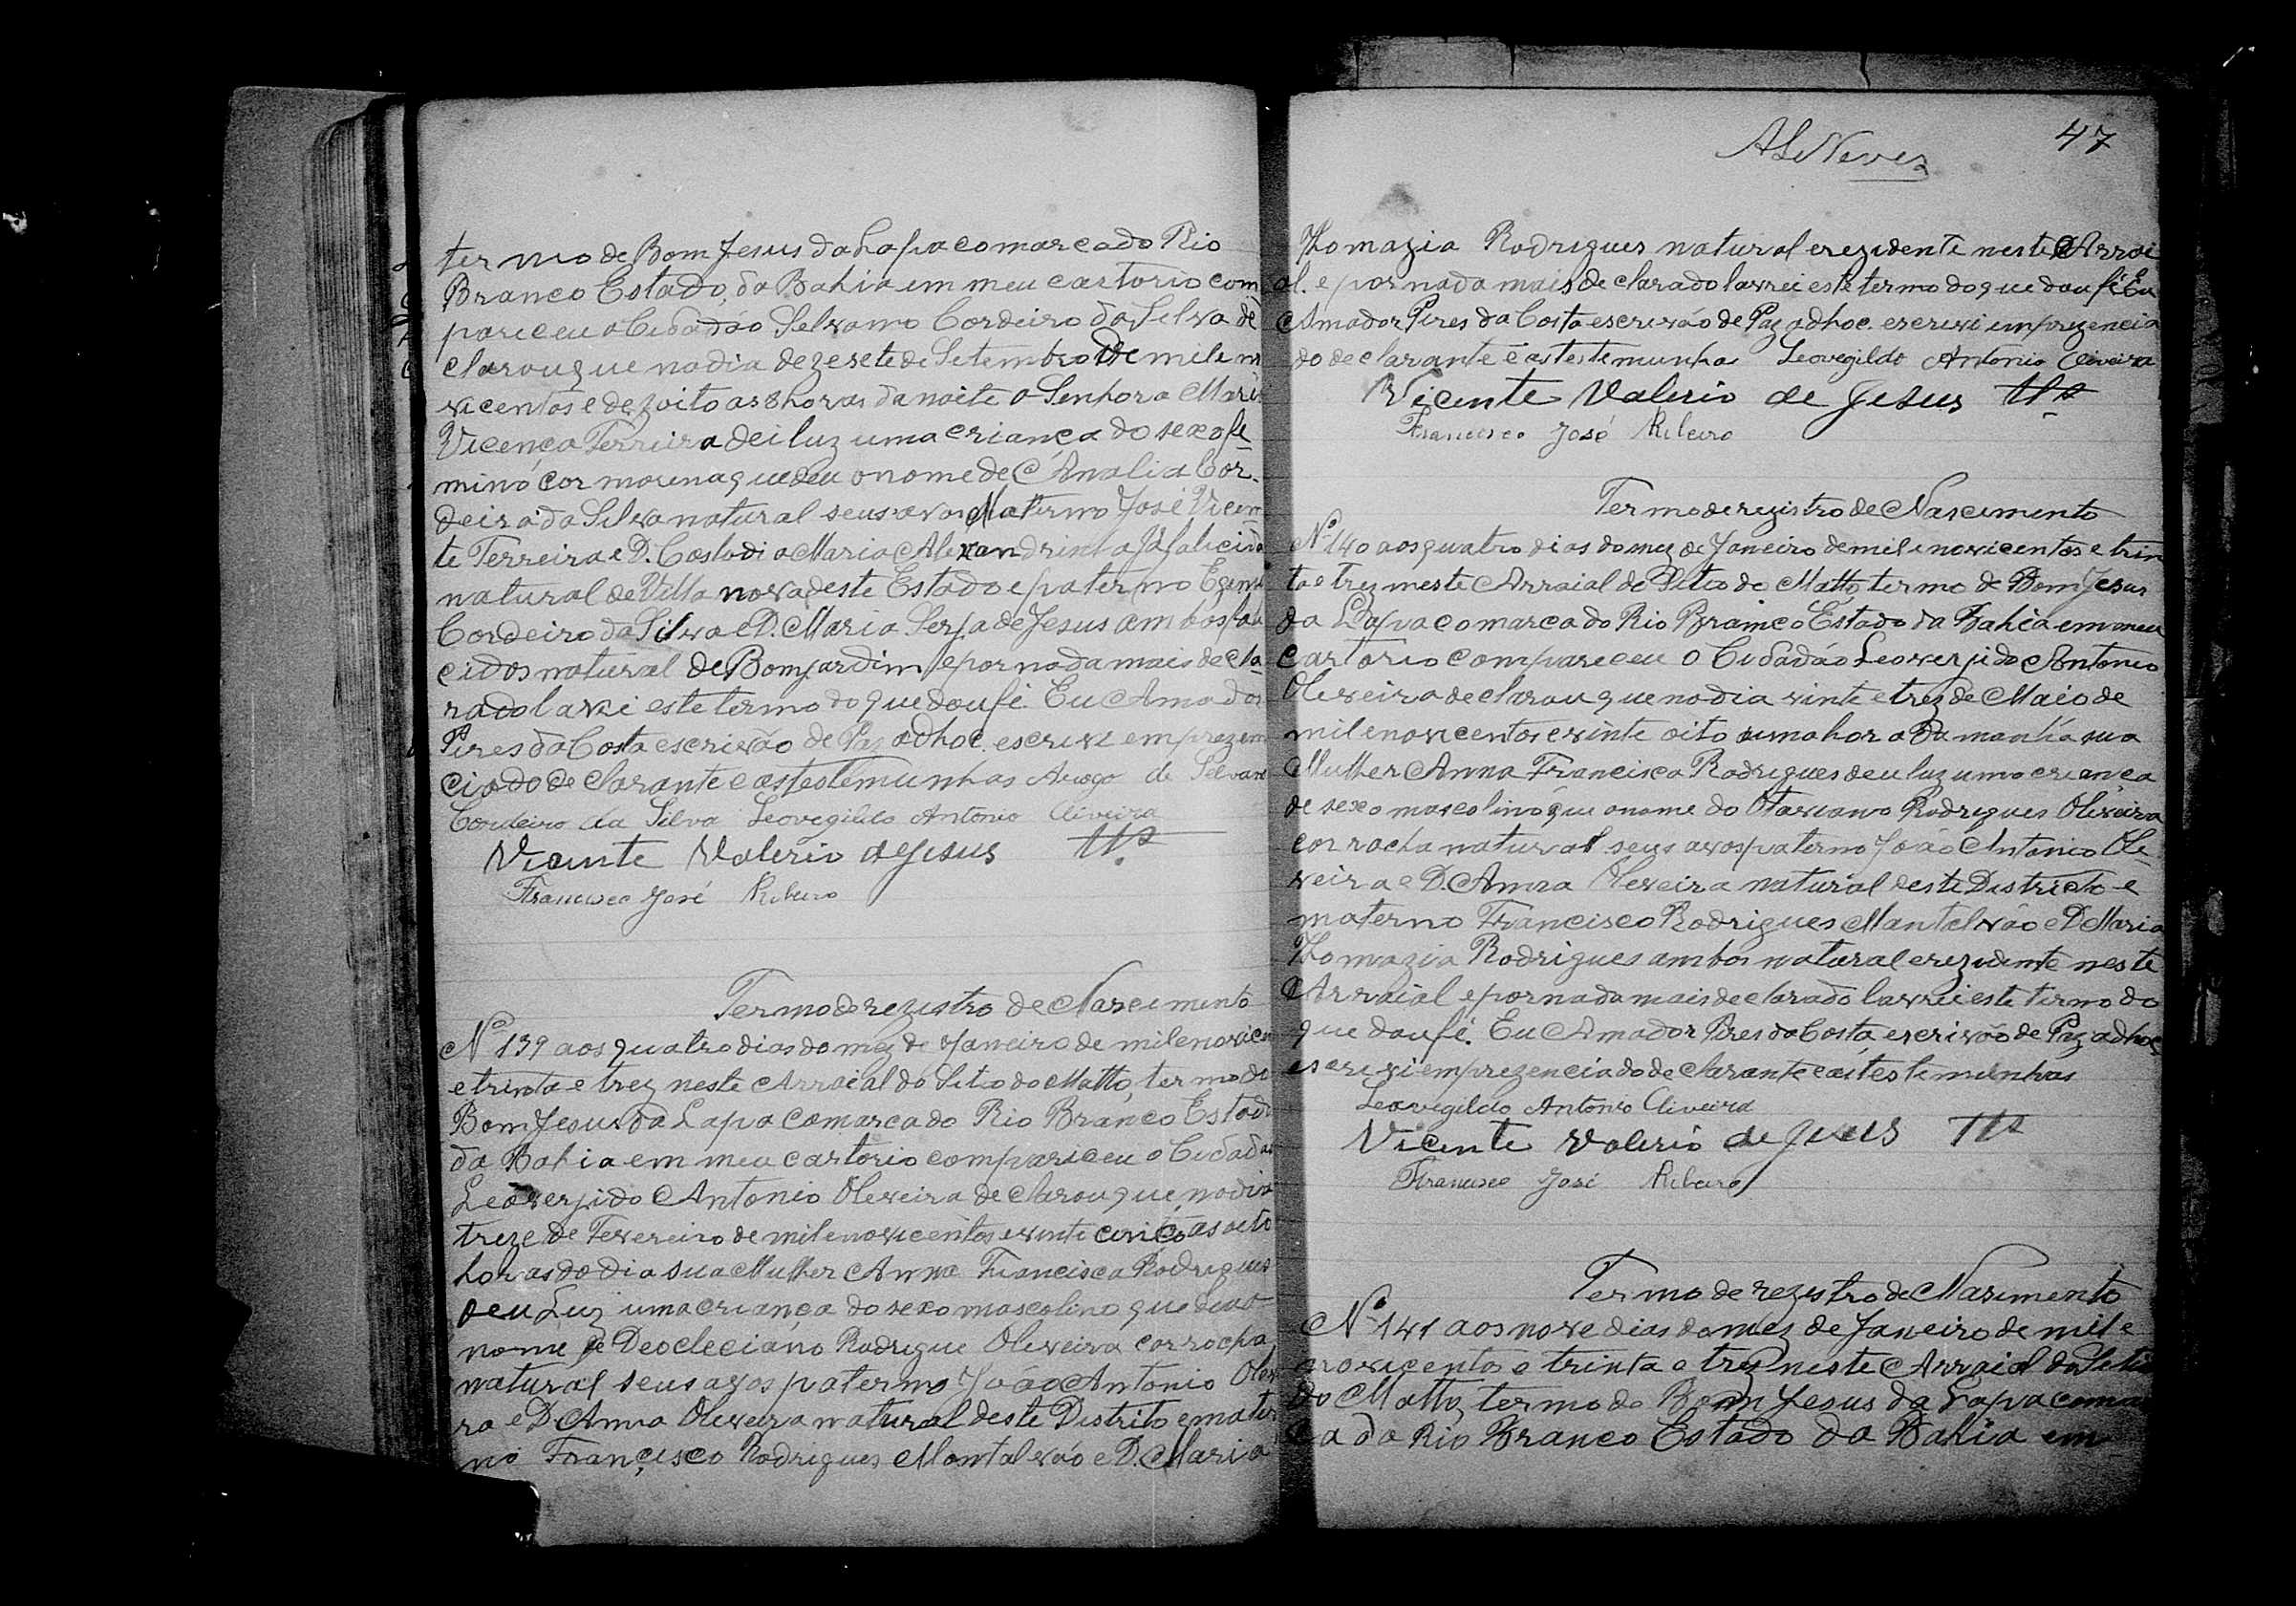 termo de Bom Jesus da Lapa comarca do Rio
Branco Estado, da Bahia em meu cartorio com
pareceu o Cidadão Selvamo Cordeiro da Selva de
clarou que no dia dezesete de Setembro de mil e no
vicentos e dezoito as 8 horas da noite a Senhora Maria
Vicença Ferreira dei luz uma criança do sexo fe
mino cor morena que deu o nome de Analia Cor-
deira da Silva natural seus avos Materno José Vicen
te Ferreira e D. Costodia Maria Alexandrinha já falicida
natural de Villa nova deste Estado e paterno
Cordeiro da Silva e D. Maria de Jesus ambos fale
cidos natural de Bomjardim e por nada mais decla
rado lavrei este termo do que dou fé. Eu Amador
Pires da Costa escrivão de Paz adhoc. escrevi em prezen
cia do declarante e as testemunhas Arogo de Selvamo
Cordeiro da Silva Leovegildo Antonio Oliveira
Vicente Valerio de Jesus tts
Francisco José Ribeiro
Termo de rezistro de Nascimento
Nº 139 aos quatro dias do mez de Janeiro de mil e novicen
e trinta e trez neste Arraial do Sitio do Matto, termo de
Bom Jesus da Lapa Comarca do Rio Branco Estado
da Bahia em meu cartorio compariceu o Cidadão
Leoverjido Antonio Oliveira declarou que no dia
treze de Fevereiro de mil e novicentos e vinte cinco as oito
horas do dia sua Mulher Anna Francisca Rodrigues
deu Luz uma criança do sexo mascolino que deu o
nome de Deocleciano Rodrigue Oliveira cor rocha
natural seus avos paterno João Antonio Olivei
ra e D. Anna Oliveira natural deste Distrito e mater
no Francisco Rodrigues Montalvão e D. Maria
47
ALNeves
Thomazia Rodrigues natural e rezidente neste Arrai
al. e por nada mais declarado lavrei este termo do que dou fé Eu
Amador Pires da Costa escrivão de Paz adhoc. escrevi em prezencia
do declarante e as testemunhas Leovegildo Antonio Oliveira
Vicente Valerio de Jesus tts
Francisco José Ribeiro
Termo de registro de Nascimento
Nº 140 aos quatro dias do mez de Janeiro de mil e novicentos e trin
ta e trez neste Arraial do Sitio do Matto, termo de Bom Jesus
da Lapa comarca do Rio Branco Estado da Bahia em meu
Cartorio compareceu o Cidadão Leoverjido Antonio
Oliveira declarou que no dia vinte e trez de Maio de
mil e novicentos e vinte oito a uma hora da manhá sua
Mulher Anna Francisca Rodrigues deu luz uma criança
de sexo mascolino que o nome do Otaviano Rodrigues Oliveira
cor rocha natural seus avos paterno João Antonio Oli
veira e D. Anna Oliveira natural deste Districto e
materno Francisco Rodrigues Mantalvão e D. Maria
Thomazia Rodrigues ambos natural e rezidente neste
Arraial e por nada mais declarado lavrei este termo do
que dou fé. Eu Amador Pires da Costa, escrivão de Paz adhoc
escrevi em prezencia do declarante e as testemunhas
Leovegildo Antonio Oliveira
Vicente Valerio de Jesus tts
Francisco José Ribeiro
Termo de rezistro de Nasimento
Nº 141 aos nove dias do mez de Janeiro de mil e
novicentos e trinta e trez neste Arraial do Sitio
do Matto, termo de Bom Jesus da Lapa comar
ca do Rio Branco Estado da Bahia em